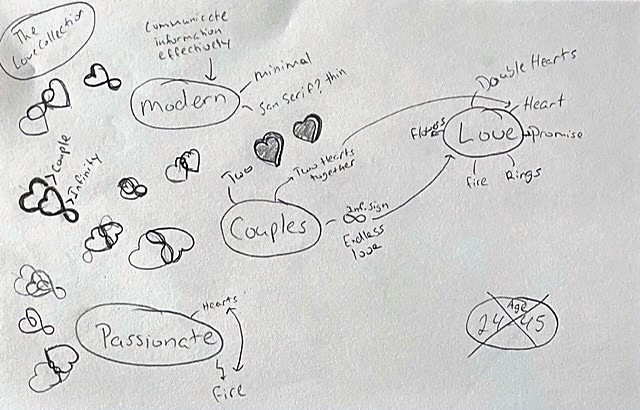 The
Love Collection
Communicate
information
effectively
modern
minimal
San Serif? thin
Couple
Infinity
Two
Two Hearts
together
Couples
Inf. sign
∞
Endless
love
Double Hearts
Heart
Flowers
Love
Promise
fire
Rings
Passionate
Hearts
fire
Age
24 45